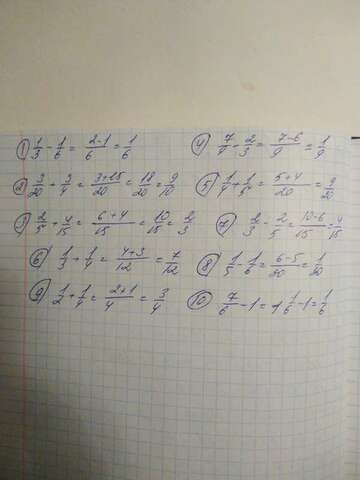 1) 1/3 - 1/6 = 2-1/6 = 1/6
4) 7/9 - 2/3 = 7-6/9 = 1/9
2) 3/20 + 3/4 = 3+15/20 = 18/20 = 9/10
5) 1/4 + 1/5 = 5+4/20 = 9/20
3) 2/5 + 4/15 = 6+4/15 = 10/15 = 2/3
7) 2/3 - 2/5 = 10-6/15 = 4/15
6) 1/3 + 1/4 = 4+3/12 = 7/12
8) 1/5 - 1/6 = 6-5/30 = 1/30
9) 1/2 + 1/4 = 2+1/4 = 3/4
10) 7/6 - 1 = 1 1/6 - 1 = 1/6